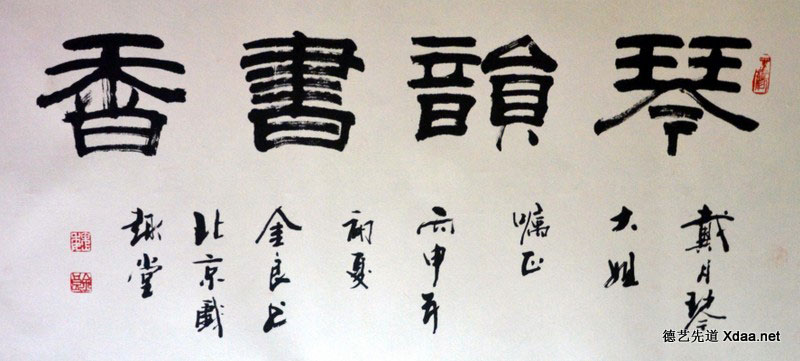 琴韻書香
戴月琴
大姐
嘱正
丙申年
初夏
金良书
北京
趣堂
德艺先道 Xdaa.net